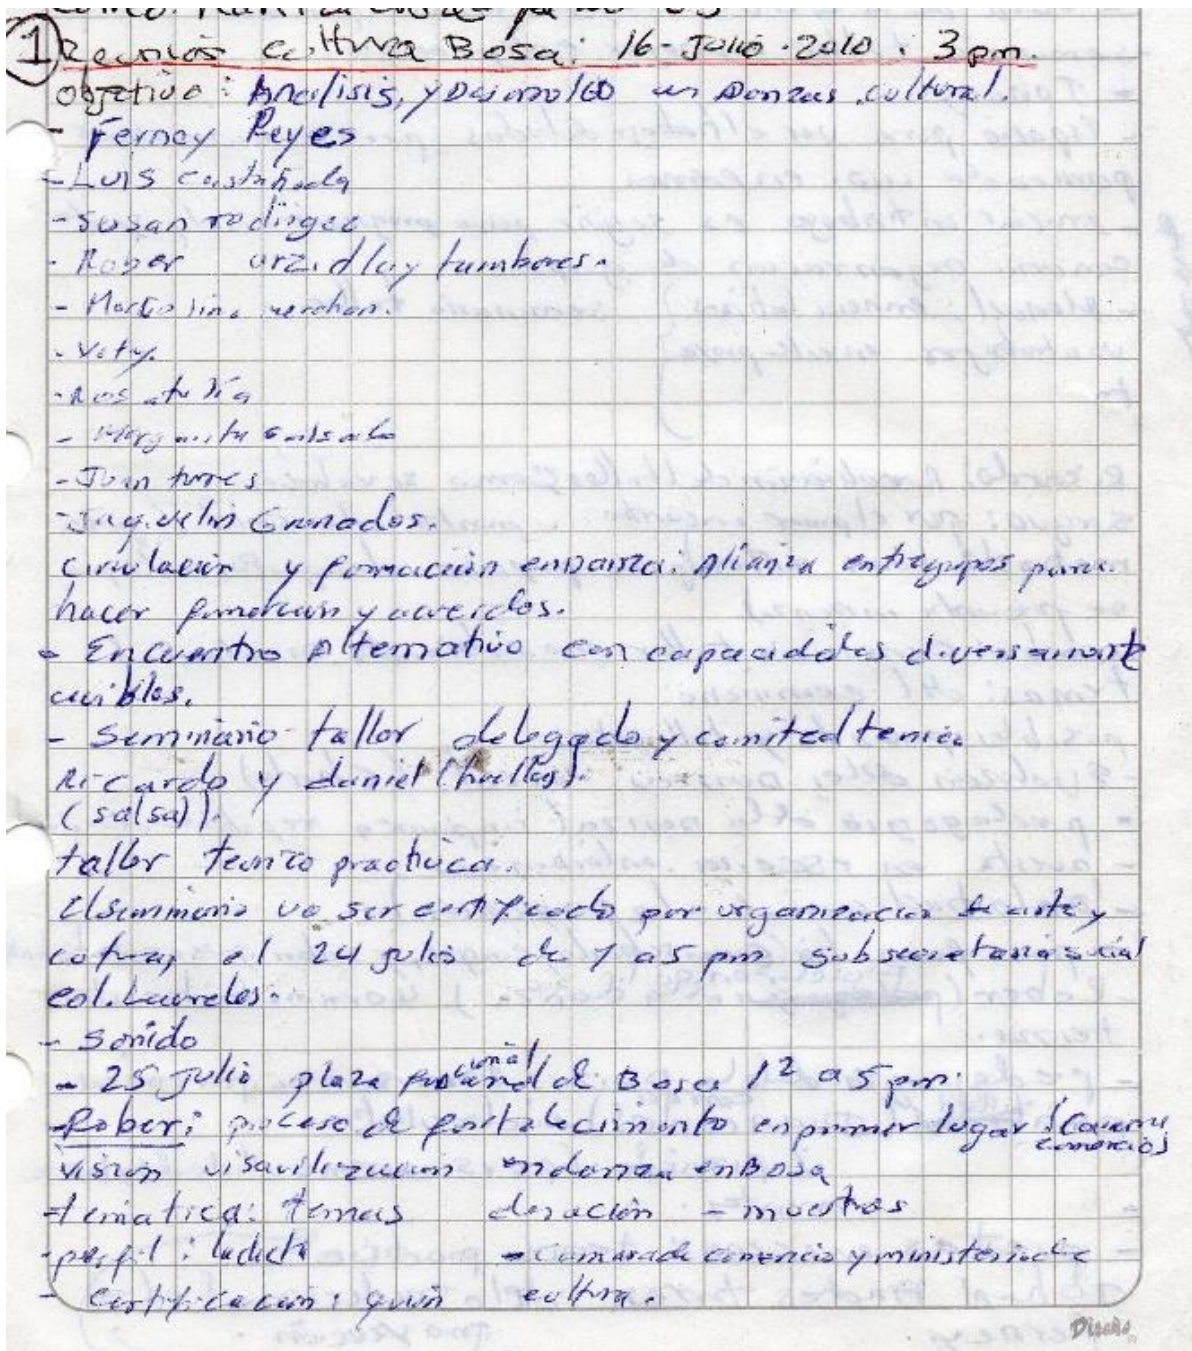 1 Reunión cultura Bosa: 16-Julio-2010. 3 pm.
objetivo: Analisis, y Desarrollo en Danzas cultural.
- Ferney Reyes
- Luis castañeda
- Susan rodirgez
- Rober y tambores.
- merchan.
- Rosatulia
- Margarita
- Juan torres
- Jaquelin Granados.
circulación y formación en Danza: Alianza entre grupos para
hacer y acuerdos.
- Encuentro Alternativo con capacidades diversamente
- Seminario taller delegado y comited
Ricardo y daniel (huellas).
(salsa)).
taller practica.
El seminario va ser certificado por organización de arte y
el 24 julio de 1 a 5 pm Subsecretaria social
col. Laureles.
- Sonido
- 25 Julio plaza de Bosa 12 a 5 pm.
- Rober: proceso de fortalecimiento en primer lugar
visión en danza en Bosa
- tematica: temas duración - muestras
- perfil: - Camara de comercio y ministerio de
- certificacion: quien cultura.
Diseño